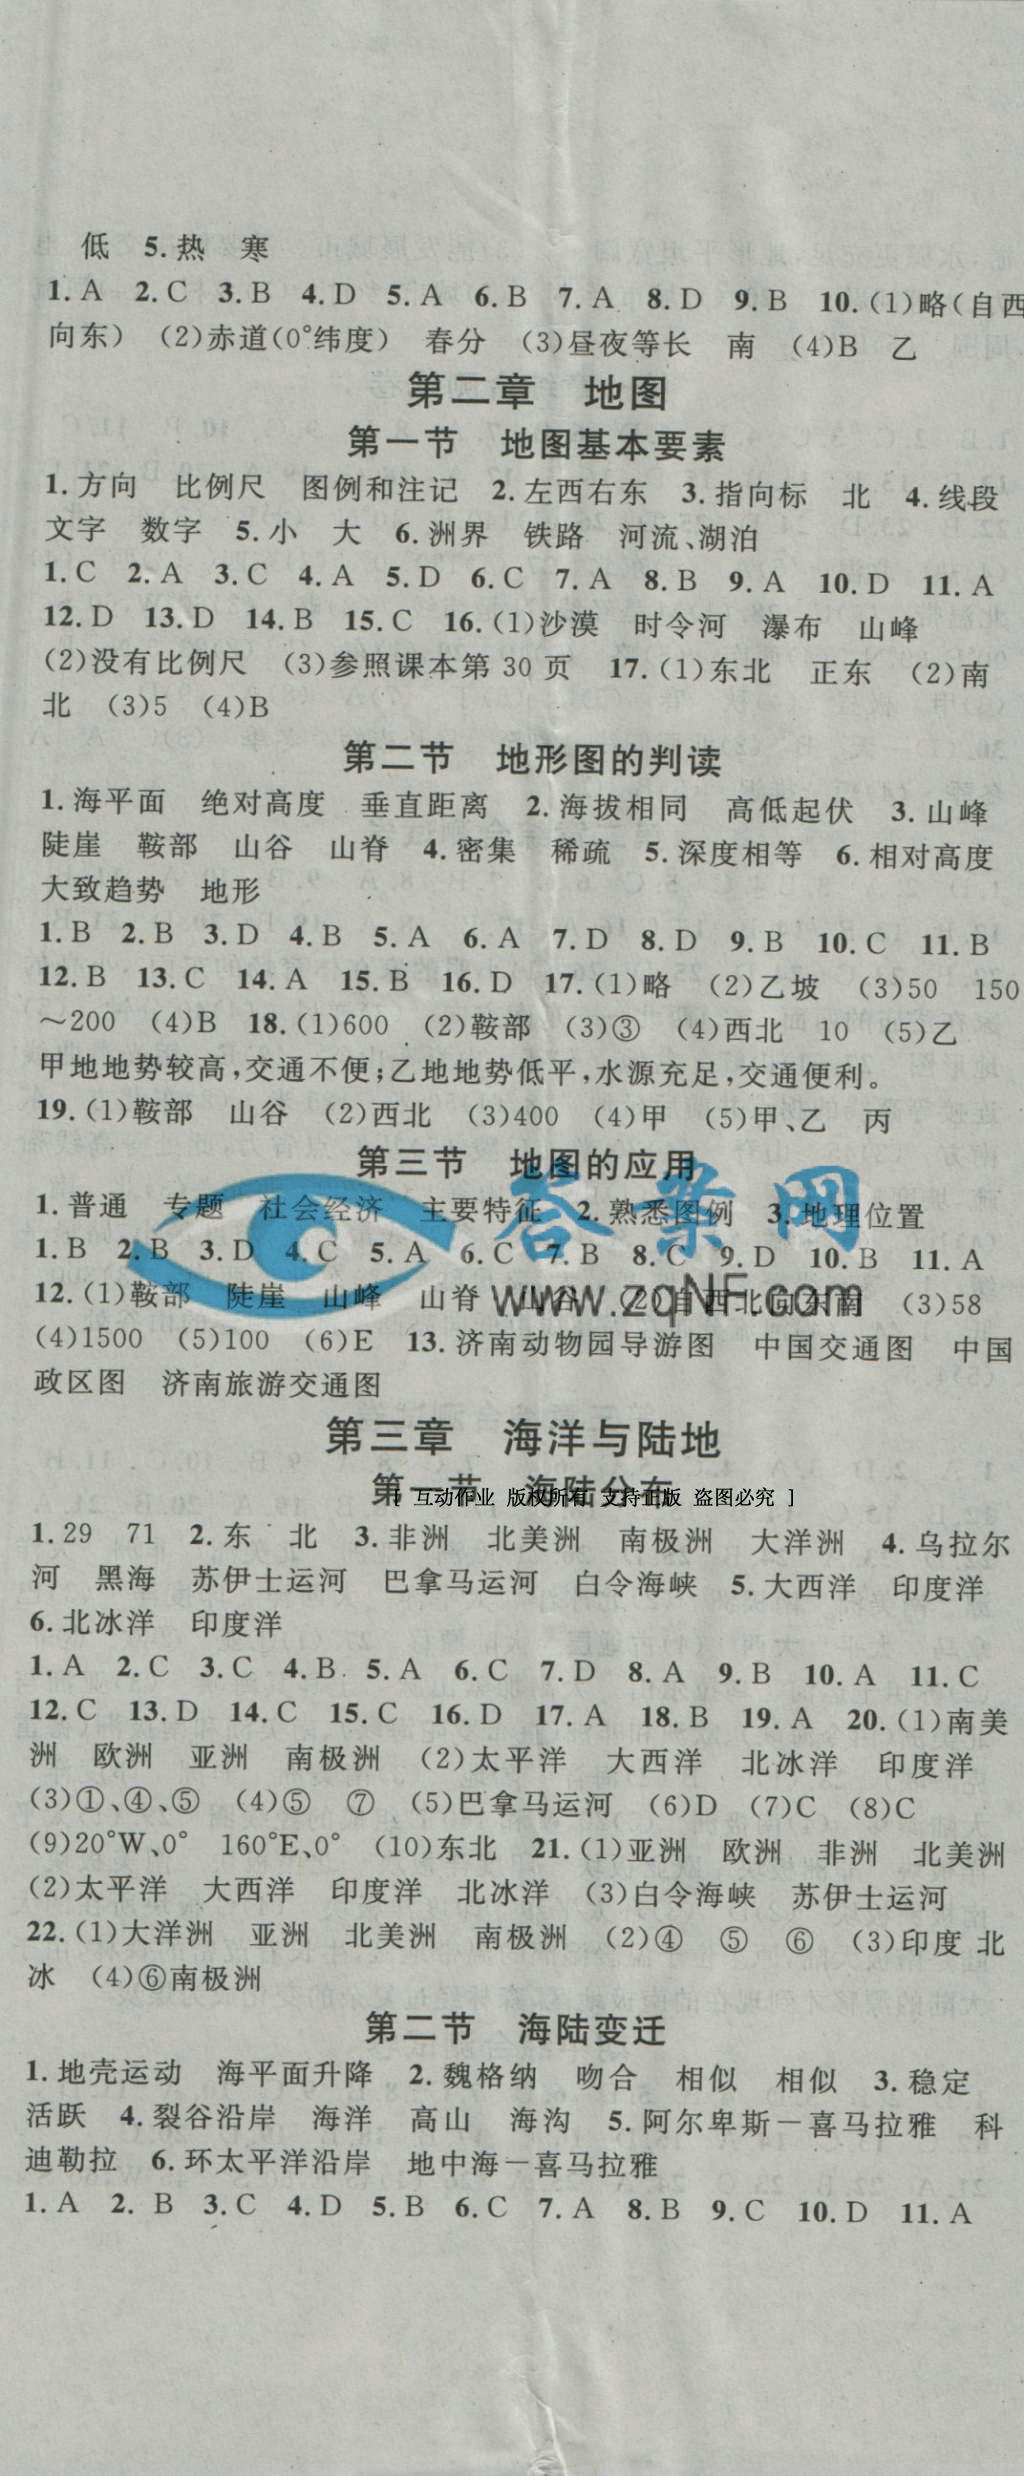 低 5.热 寒
1.A 2.C 3.B 4.D 5.A 6.B 7.A 8.D 9.B 10.(1)略(自西
向东) (2)赤道(0°纬度) 春分 (3)昼夜等长 南 (4)B 乙
第二章 地图
第一节 地图基本要素
1.方向 比例尺 图例和注记 2.左西右东 3.指向标 北 4.线段
文字 数字 5.小 大 6.洲界 铁路 河流、湖泊
1.C 2.A 3.C 4.A 5.D 6.C 7.A 8.B 9.A 10.D 11.A
12.D 13.D 14.B 15.C 16.(1)沙漠 时令河 瀑布 山峰
(2)没有比例尺 (3)参照课本第30页 17.(1)东北 正东 (2)南
北 (3)5 (4)B
第二节 地形图的判读
1.海平面 绝对高度 垂直距离 2.海拔相同 高低起伏 3.山峰
陡崖 鞍部 山谷 山脊 4.密集 稀疏 5.深度相等 6.相对高度
大致趋势 地形
1.B 2.B 3.D 4.B 5.A 6.A 7.D 8.D 9.B 10.C 11.B
12.B 13.C 14.A 15.B 16.D 17.(1)略 (2)乙坡 (3)50 150
~200 (4)B 18.(1)600 (2)鞍部 (3)③ (4)西北 10 (5)乙
甲地地势较高,交通不便;乙地地势低平,水源充足,交通便利。
19.(1)鞍部 山谷 (2)西北 (3)400 (4)甲 (5)甲、乙 丙
第三节 地图的应用
1.普通 专题 社会经济 主要特征 2.熟悉图例 3.地理位置
1.B 2.B 3.D 4.C 5.A 6.C 7.B 8.C 9.D 10.B 11.A
12.(1)鞍部 陡崖 山峰 山脊 山谷 (2)自西北向东南 (3)58
(4)1500 (5)100 (6)E 13.济南动物园导游图 中国交通图 中国
政区图 济南旅游交通图
答案网
www.zqNF.com
第三章 海洋与陆地
第一节 海陆分布
[ 互动作业 版权所有 支持正版 盗图必究 ]
1.29 71 2.东 北 3.非洲 北美洲 南极洲 大洋洲 4.乌拉尔
河 黑海 苏伊士运河 巴拿马运河 白令海峡 5.大西洋 印度洋
6.北冰洋 印度洋
1.A 2.C 3.C 4.B 5.A 6.C 7.D 8.A 9.B 10.A 11.C
12.C 13.D 14.C 15.C 16.D 17.A 18.B 19.A 20.(1)南美
洲 欧洲 亚洲 南极洲 (2)太平洋 大西洋 北冰洋 印度洋
(3)①、④、⑤ (4)⑤ ⑦ (5)巴拿马运河 (6)D (7)C (8)C
(9)20°W、0° 160°E、0° (10)东北 21.(1)亚洲 欧洲 非洲 北美洲
(2)太平洋 大西洋 印度洋 北冰洋 (3)白令海峡 苏伊士运河
22.(1)大洋洲 亚洲 北美洲 南极洲 (2)④ ⑤ ⑥ (3)印度 北
冰 (4)⑥南极洲
第二节 海陆变迁
1.地壳运动 海平面升降 2.魏格纳 吻合 相似 相似 3.稳定
活跃 4.裂谷沿岸 海洋 高山 海沟 5.阿尔卑斯－喜马拉雅 科
迪勒拉 6.环太平洋沿岸 地中海－喜马拉雅
1.A 2.B 3.C 4.D 5.B 6.C 7.A 8.B 9.C 10.D 11.A